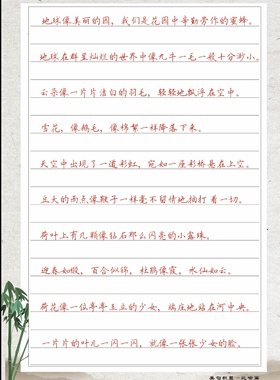 地球像美丽的园，我们是花园中辛勤劳作的蜜蜂。
地球在群星灿烂的世界中像九牛一毛一般十分渺小。
云朵像一片片洁白的羽毛，轻轻地飘浮在空中。
雪花，像鹅毛，像棉絮一样降落下来。
天空中出现了一道彩虹，宛如一座彩桥悬在上空。
豆大的雨点像鞭子一样毫不留情地抽打着一切。
荷叶上有几颗像钻石那么闪亮的小露珠。
迎春如缎，百合似锦，杜鹃像霞，水仙如云。
荷花像一位亭亭玉立的少女，端庄地站在河中央。
一片片的叶儿一闪一闪，就像一张张少女的脸。